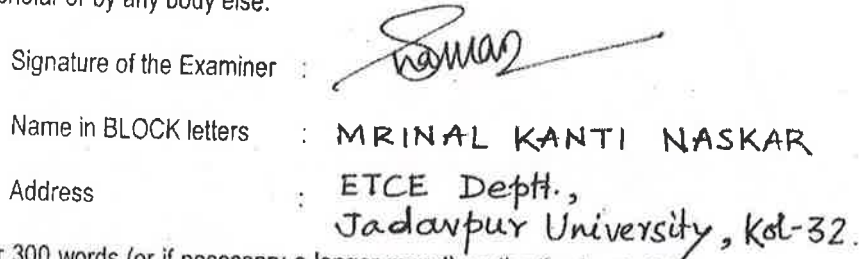 by any body else.
Signature of the Examiner :
Name in BLOCK letters : MRINAL KANTI NASKAR
Address : ETCE Deptt.,
Jadavpur University, Kol-32.
300 words (or if necessary a longer